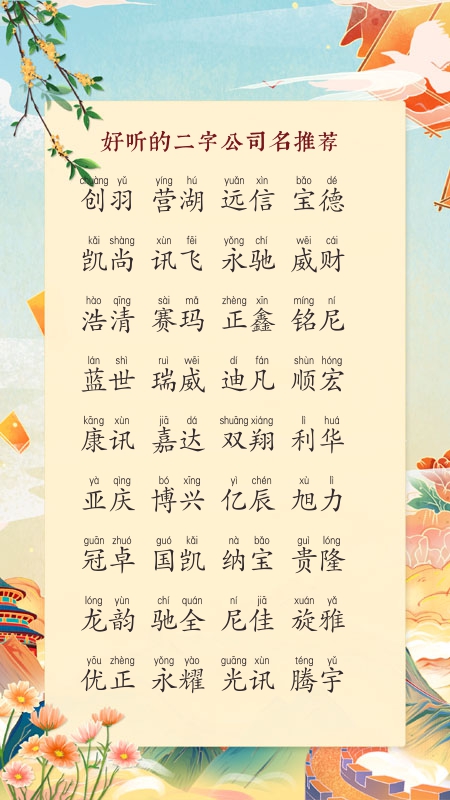 好听的二字公司名推荐
chuàng yǔ yíng hú yuǎn xìn bǎo dé
创羽 营湖 远信 宝德
kǎi shàng xùn fēi yǒng chí wēi cái
凯尚 讯飞 永驰 威财
hào qīng sài mǎ zhèng xīn míng ní
浩清 赛玛 正鑫 铭尼
lán shì ruì wēi dí fán shùn hóng
蓝世 瑞威 迪凡 顺宏
kāng xùn jiā dá shuāng xiáng lì huá
康讯 嘉达 双翔 利华
yà qìng bó xīng yì chén xù lì
亚庆 博兴 亿辰 旭力
guān zhuó guó kǎi nà bǎo guì lóng
冠卓 国凯 纳宝 贵隆
lóng yùn chí quán ní jiā xuán yǎ
龙韵 驰全 尼佳 旋雅
yōu zhèng yǒng yào guāng xùn téng yǔ
优正 永耀 光讯 腾宇